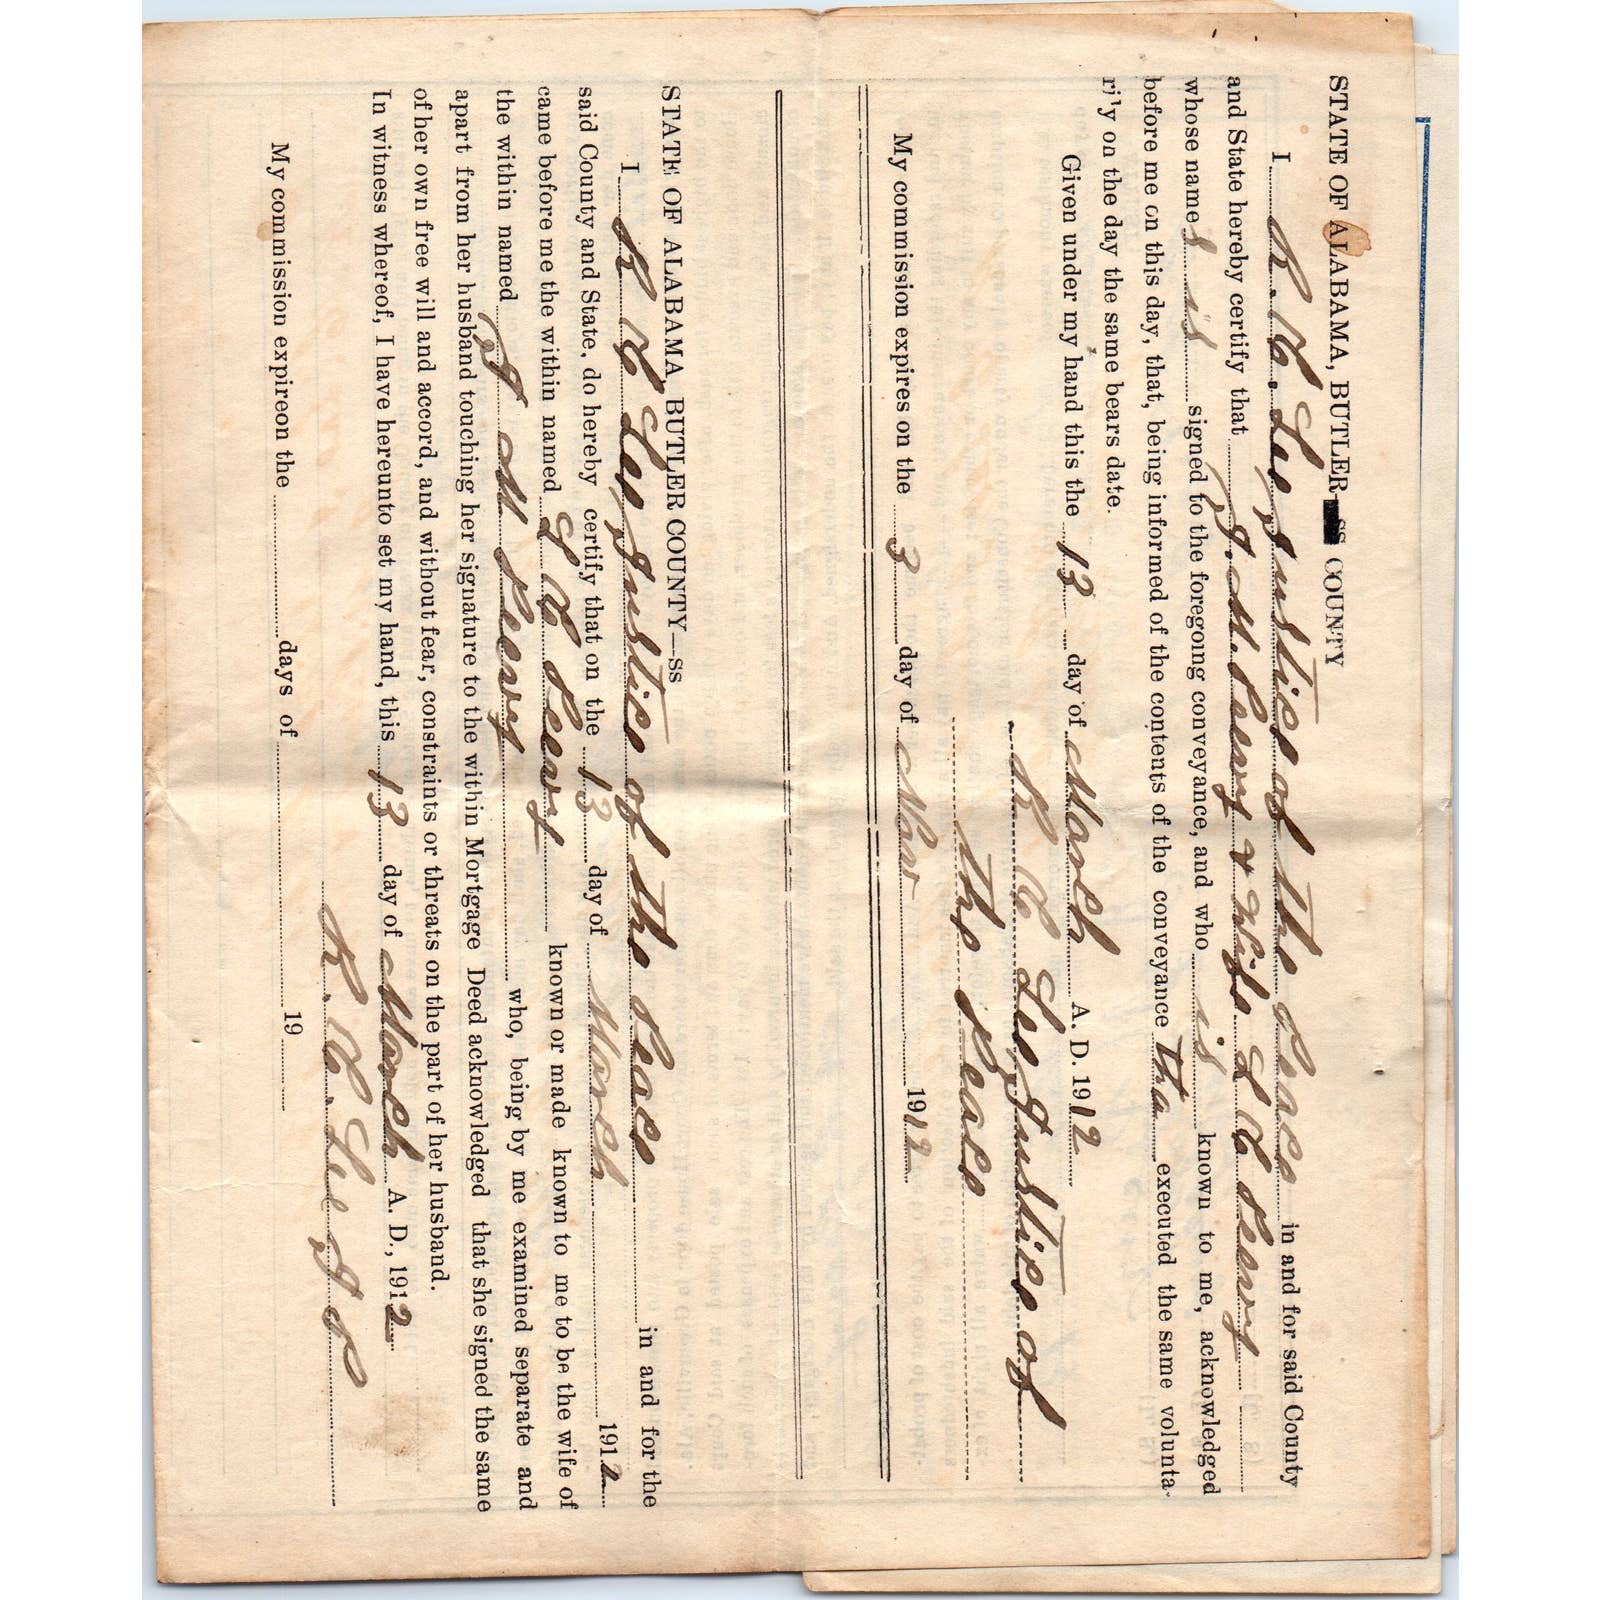 STATE OF ALABAMA, BUTLER ss COUNTY
I R. C. Lee, Justice of the Peace in and for said County
and State hereby certify that J. M. Peavy & Wife L C Peavy
whose names is signed to the foregoing conveyance, and who is known to me, acknowledged
before me on this day, that, being informed of the contents of the conveyance Tha executed the same volunta-
rily on the day the same bears date.
Given under my hand this the 13 day of March A. D. 1912
R C Lee Justice of
the Peace
My commission expires on the 3 day of Nov 1912
STATE OF ALABAMA, BUTLER COUNTY—ss
I R C Lee, Justice of the Peace in and for the
said County and State, do hereby certify that on the 13 day of March 1912
came before me the within named L C Peavy known or made known to me to be the wife of
the within named J M Peavy who, being by me examined separate and
apart from her husband touching her signature to the within Mortgage Deed acknowledged that she signed the same
of her own free will and accord, and without fear, constraints or threats on the part of her husband.
In witness whereof, I have hereunto set my hand, this 13 day of March A. D., 1912
R. C. Lee J P
My commission expireon the days of 19